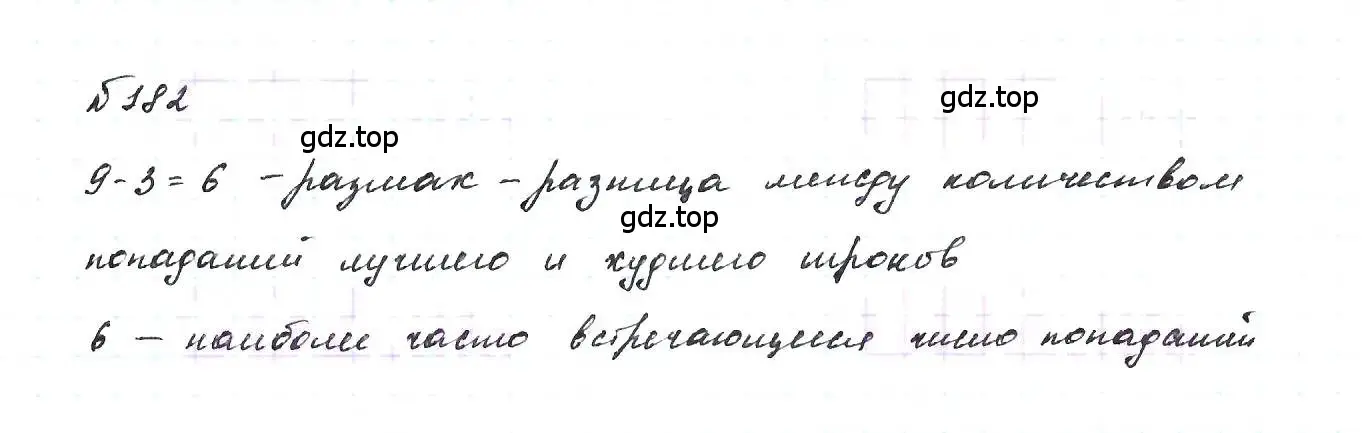 № 182
gdz.top
gdz.top
9-3=6 - размах - разница между количеством
gdz.top
попаданий лучшего и худшего игроков
6 - наиболее часто встречающееся число попаданий